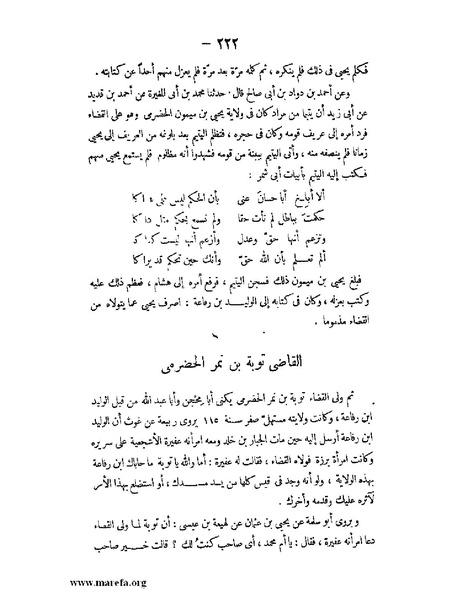 — ٢٢٢ —
فكلم يحيى فى ذلك فلم ينكره ، ثم كلمه مرّة بعد مرّة فلم يعزل منهم أحداً عن كتابته .
وعن أحمد بن دواد بن أبى صالح قال : حدثنا محمد بن أبى المغيرة عن أحمد بن قديد
عن أبى زيد أن يتيما من مراد كان فى ولاية يحيى بن ميمون الحضرمى وهو على القضاء
فرد أمره إلى عريف قومه وكان فى حجره ، فتظلم اليتيم بعد بلوغه من العريف إلى يحيى
زمانا فلم ينصفه منه ، وأتى اليتيم ببينة من قومه فشهدوا أنه مظلوم فلم يستمع يحيى منهم
فكتب إليه اليتيم بأبيات أبى شمر :
ألا أبلغ أبا حسان عنى بأن الحكم ليس على
حكمت بباطل لم تأت حقا ولم نسمع بحكم مثل ذاكا
وتزعم أنها حقّ وعدل وأزعم أنها ليست كذاكا
ألم تعلم بأن الله حقّ وأنك حين تحكم قد يراكا
فبلغ يحيى بن ميمون ذلك فسجن اليتيم ، فرفع أمره إلى هشام ، فعظم ذلك عليه
وكتب بعزله ، وكان فى كتابه إلى الوليد بن رفاعة : اصرف يحيى عما يتولاه من
القضاء مذموما .
القاضى توبة بن نمر الحضرمى
ثم ولى القضاء توبة بن نمر الحضرمى يكنى أبا محجن وأبا عبد الله من قبل الوليد
ابن رفاعة ، وكانت ولايته مستهلّ صفر سنة ١١٥ يروى ربيعة عن غوث أن الوليد
ابن رفاعة أرسل إليه حين مات الجبار بن خلد ومعه امرأته عفيرة الأشجعية على سريره
وكانت امرأة برزة فولاه القضاء ، فقالت له عفيرة : أما والله يا توبة ما حاباك ابن رفاعة
بهذه الولاية ، ولو أنه وجد فى قيس كلها من يسد مسدك ، أو استضلع بهذا الأمر
لآثره عليك وقدمه وأخرك .
و يروى أبو سلمة عن يحيى بن عثمان عن لهيعة بن عيسى : أن توبة لما ولى القضاء
دعا امرأته عفيرة ، فقال : يا أم محمد ، أى صاحب كنتُ لك ؟ قالت خير صاحب
www.marefa.org